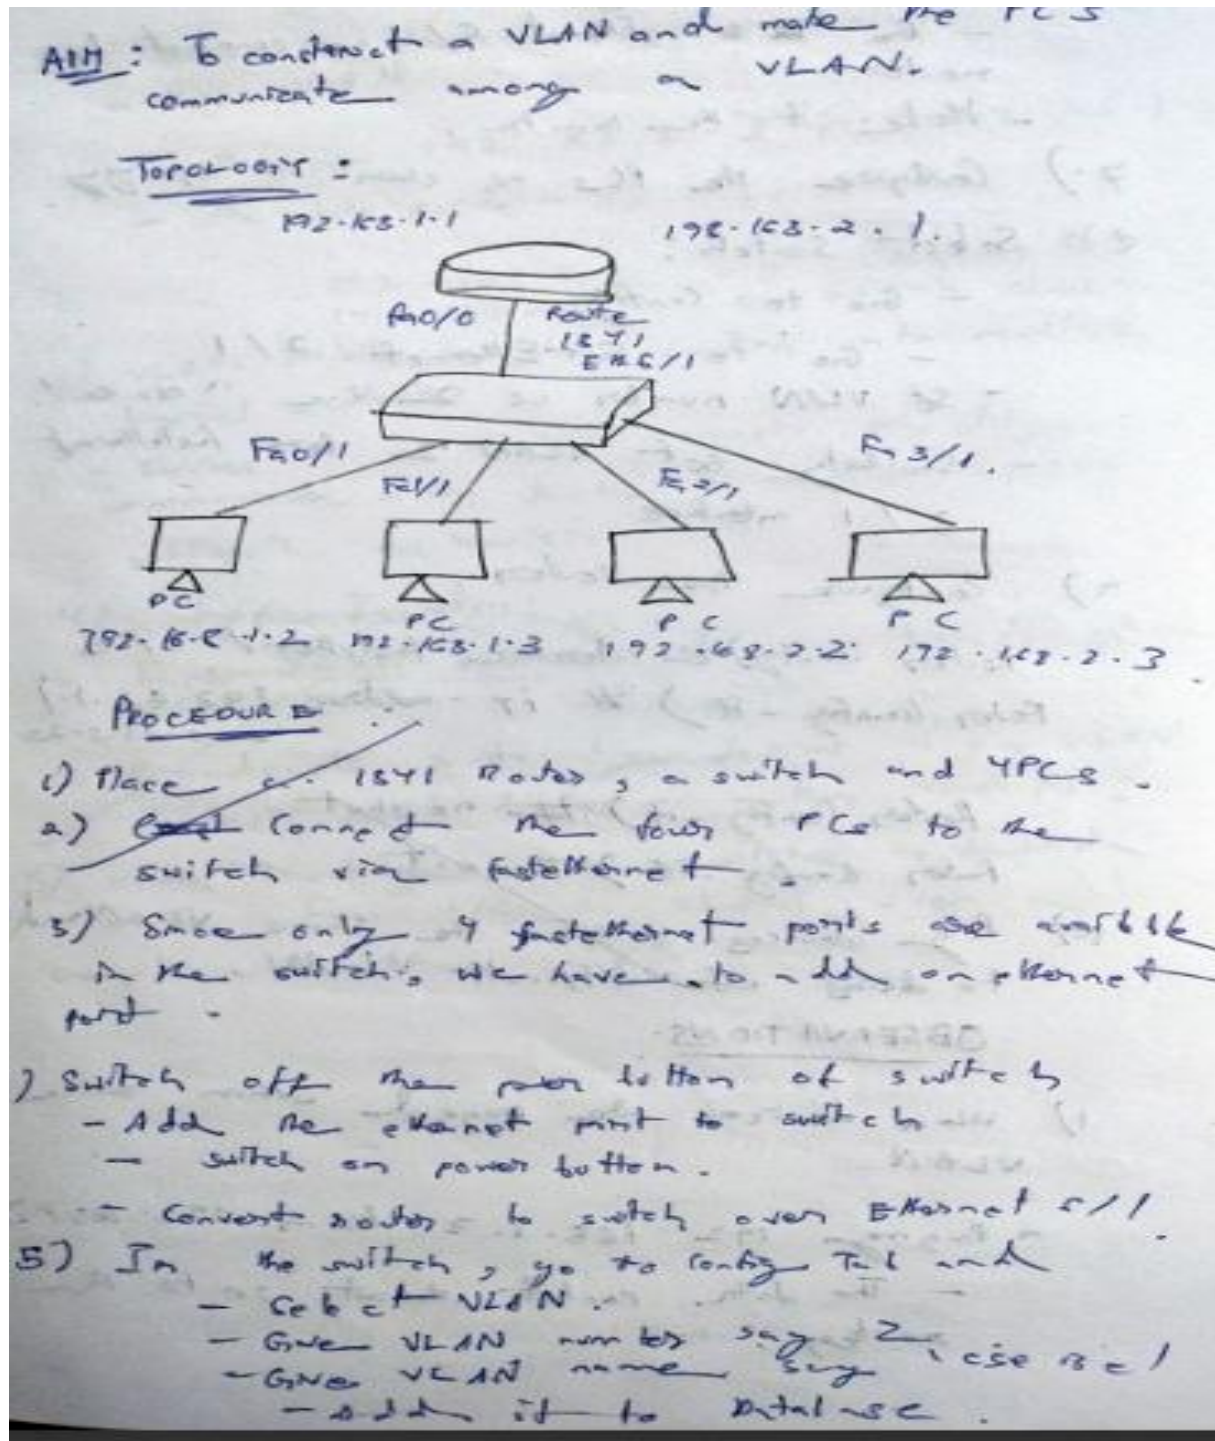 AIM : To construct a VLAN and make the PCs
communicate among a VLAN.
TOPOLOGY :
192.168.1.1 192.168.2.1.
Fa0/0 Route
1841
Eth6/1
Fa0/1 Fa1/1 Fa2/1 Fa3/1.
PC PC PC PC
192.168.1.2 192.168.1.3 192.168.2.2 192.168.2.3
PROCEDURE :
1) Place a 1841 Router, a switch and 4PCs.
2) Connect the four PCs to the
switch via fastethernet.
3) Since only 4 fastethernet ports are available
in the switch, we have to add an ethernet
port.
) Switch off the power button of switch
- Add the ethernet port to switch
- switch on power button.
- Convert router to switch over Ethernet 6/1.
5) In the switch, go to Config Tab and
- Select VLAN.
- Give VLAN number say 2,
- Give VLAN name say "cse
- Add it to Database.